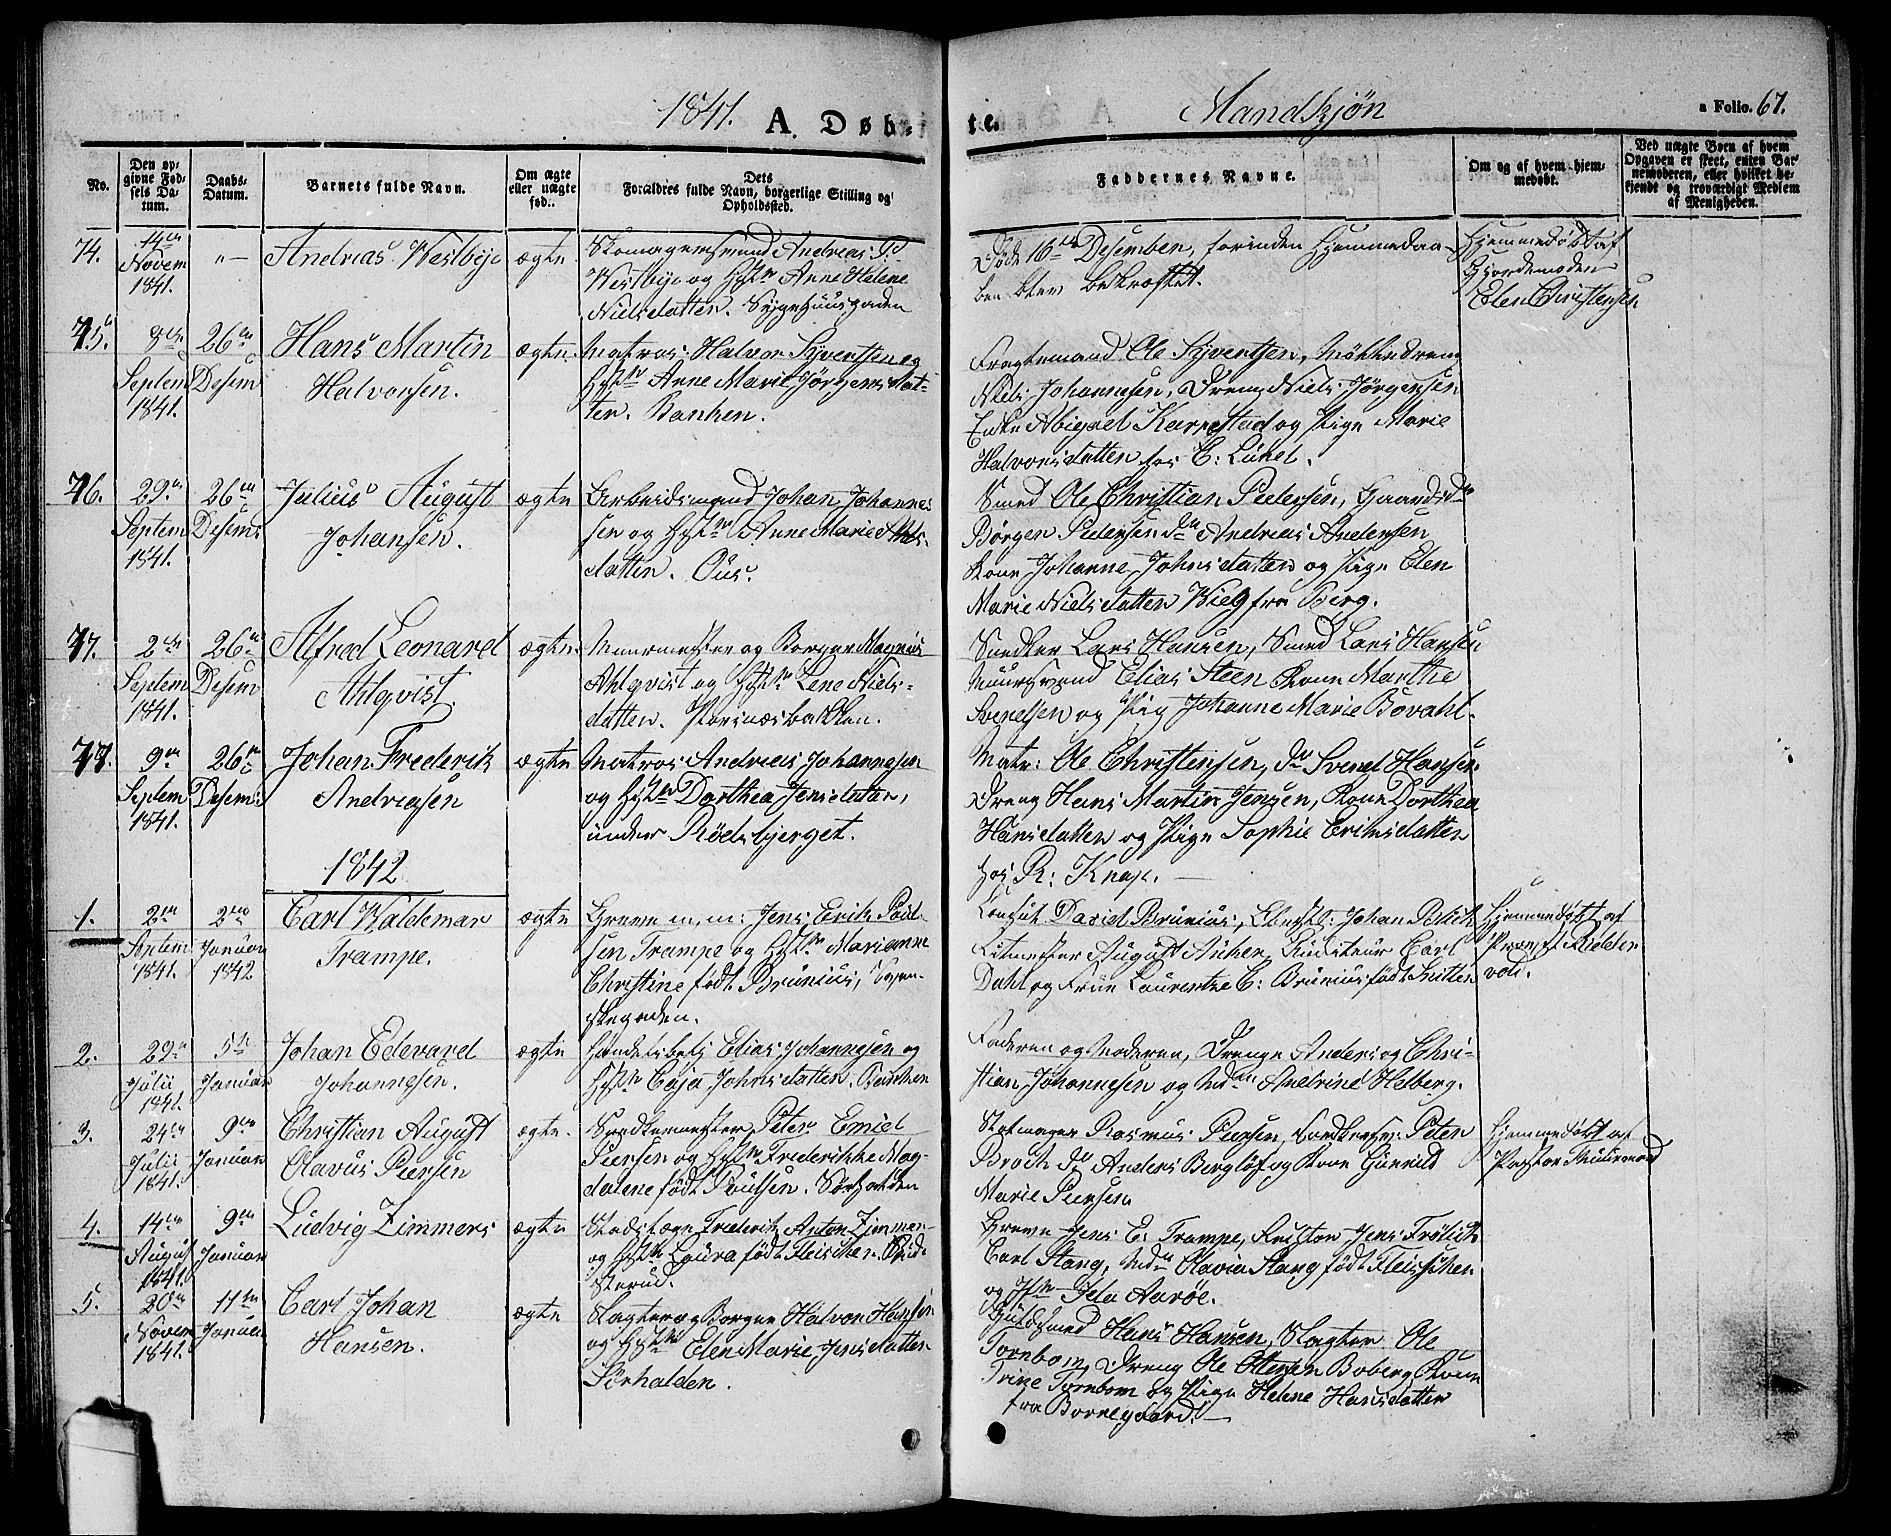 1841. A. Døb-
te. Mandkjøn a Folio. 67.
No.
Den op-
givne Fød-
sels Da-
tum.
Daabs-
Datum.
Barnets fulde Navn.
Om ægte
eller uægte
fød.
Dets
Forældres fulde Navn, borgerlige Stilling og
Opholdssted.
Faddernes Navne.
Om og af hvem hjem-
medøbt.
Ved uægte Børn af hvem
Opgaven er skeet, enten Bar-
nemoderen, eller hvilket be-
kjendt og troværdigt Medlem
af Menigheden.
74.
14de
Novem
1841.
"—
Andreas Westbye
ægte
Skomagersvend Andreas P.
Westbye og Hstr Anne Helene
Nielsdatter. Sygehuusgaden
Døde 16de Desember, forinden Hjemmedaa-
ben blev bekræftet.
Hjemmedøbt af
Gjordemoder
Elen Christensen
75.
8de
Septem
1841.
26de
Desem
Hans Martin
Halvorsen.
ægte.
Matros Halvor Syvertsen og
Hstr Anne Marie Jørgensdat-
ter. Banken.
Fragtemand Ole Syvertsen,
Niels Johannesen, Dreng Niels Jørgensen
Enke Abigael Karrestad og Pige Marie
Halvorsdatter hos C: Lükel.
76.
29de
Septem
1841.
26de
Desem:
Julius August
Johansen.
ægte
Arbeidsmand Johan Johanne-
sen og Hstr Anne Marie
datter. Ous.
Smed Ole Christian Pedersen,
Børger Pedersen do Andreas Andersen
Kone Johanne Johnsdatter og Pige Elen
Marie Nielsdatter Wiely fra Berg.
77.
2den
Septem
1841.
26de
Desem
Alfred Leonard
Ahlqvist.
ægte.
Muurmester og Borger Magnus
Ahlqvist og Hstr Lene Niels-
datter. Porsnæsbakken.
Snedker Lars Hansen, Smed Lars Hansen
Muursvend Elias Steen Kone Marthe
Svendsen og Pig Johanne Marie Bovahl.
78.
9de
Septem
1841.
26de
Desem:
Johan Frederik
Andreasen
ægte
Matros Andreas Johannesen
og Hstr Dorthea Jensdatter,
under Rødsbjerget.
Matr: Ole Christensen, do Svend Hansen
Dreng Hans Martin Jensen, Kone Dorthea
Hansdatter og Pige Sophie Eriksdatter
hos R: Knap. —
1842
1.
2den
Septem
1841.
2den
Januar
1842
Carl Waldemar
Trampe.
ægte
Greve m,m: Jens Erik Poul-
sen Trampe og Hstr Marianne
Christine født Brunius, Sven-
skegaden.
Consul David Brunius, Johan
Ritmester August Anker, Auditeur Carl
Dahl og Frue Laurentze C: Brunius født
Hjemmedøbt af
Provst Ridder
vold.
2.
29de
Julii
1841.
5te
Januar
Johan Edevard
Johannesen.
ægte
Handelsbetj Elias Johannesen og
Hstr Caja Johnsdatter. Banken
Faderen og Moderen, Drenge Anders og Chri-
stian Johannesen og Mdm Andrine Helberg.
3.
24de
Julii
1841.
9de
Januar
Christian August
Olavus Piersen
ægte.
Snedkermester Peter Emiel
Piersen og Hstr Frederikke Mag-
dalene født Poulsen. Sørhalden
Rasmus Piersen, Peter
Broch do Anders Bergløf og Kone Gunnild
Marie Piersen
Hjemmedøbt af
Pastor
4.
14de
August
1841.
9de
Januar
Ludvig Zimmers
ægte
Frederik Anton Zimmer
og Hstr Laura født Fleischer.
Greve Jens E: Trampe, Jens Frølich
Carl Stang, Mdm Olavia Stang født Fleischer
og Jfr Ida Aarøe.
5.
20de
Novem
1841.
11te
Januar
Carl Johan
Hansen.
ægte
Slagter og Borger Halvor Hansen
og Hstr Elen Marie Jensdatter
Sørhalden.
Guldsmed Hans Hansen, Slagter Ole
Tornbom, Dreng Ole Ottesen Boberg, Kone
Trine Tornbom og Pige Helene Hansdatter
fra Borregaard. —